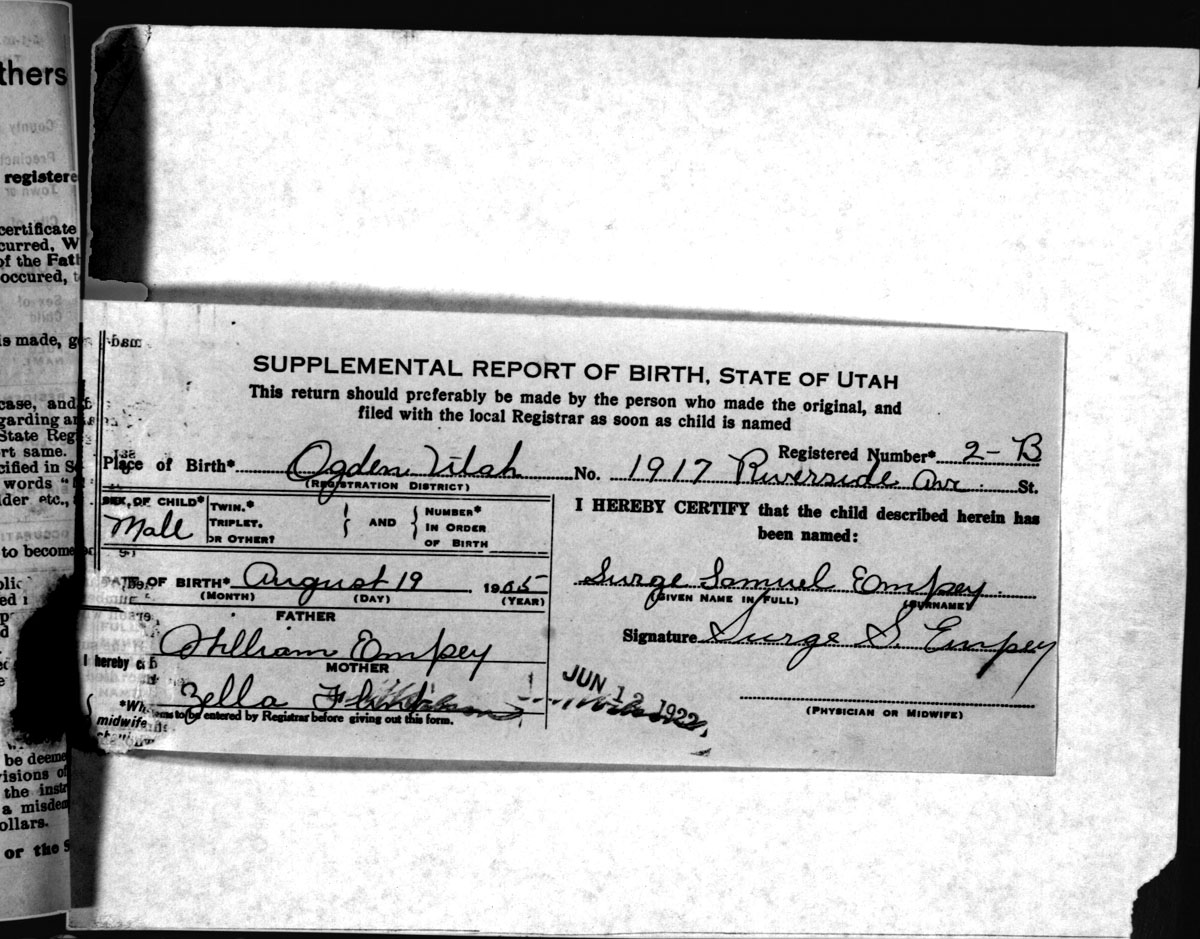 thers
registere
certificate
curred, W
of the Fath
occured, t
is made, g
case, and
garding a
State Reg
rt same.
cified in S
words "
lder etc.,
to become
be deeme
visions of
the instr
a misdem
ollars.
or the S
SUPPLEMENTAL REPORT OF BIRTH, STATE OF UTAH
This return should preferably be made by the person who made the original, and
filed with the local Registrar as soon as child is named
Registered Number* 2-B
Place of Birth* Ogden Utah No. 1917 Riverside Ave. St.
(REGISTRATION DISTRICT)
SEX OF CHILD* Male
TWIN.*
TRIPLET.
OR OTHER?
AND
NUMBER*
IN ORDER
OF BIRTH
I HEREBY CERTIFY that the child described herein has
been named:
DATE OF BIRTH* August 19 1905
(MONTH) (DAY) (YEAR)
Surge Samuel Empey
(GIVEN NAME IN FULL) (SURNAME)
FATHER
William Empey
Signature Surge S. Empey
MOTHER
Zella
JUN 12 1922
(PHYSICIAN OR MIDWIFE)
I hereby
to be entered by Registrar before giving out this form.
midwife